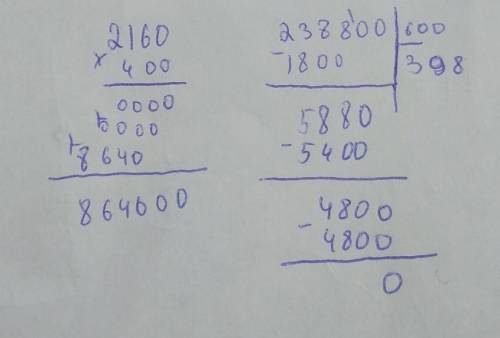 2160
× 400
0000
+ 0000
+ 8640
864000
238800 600
- 1800 398
5880
- 5400
4800
- 4800
0